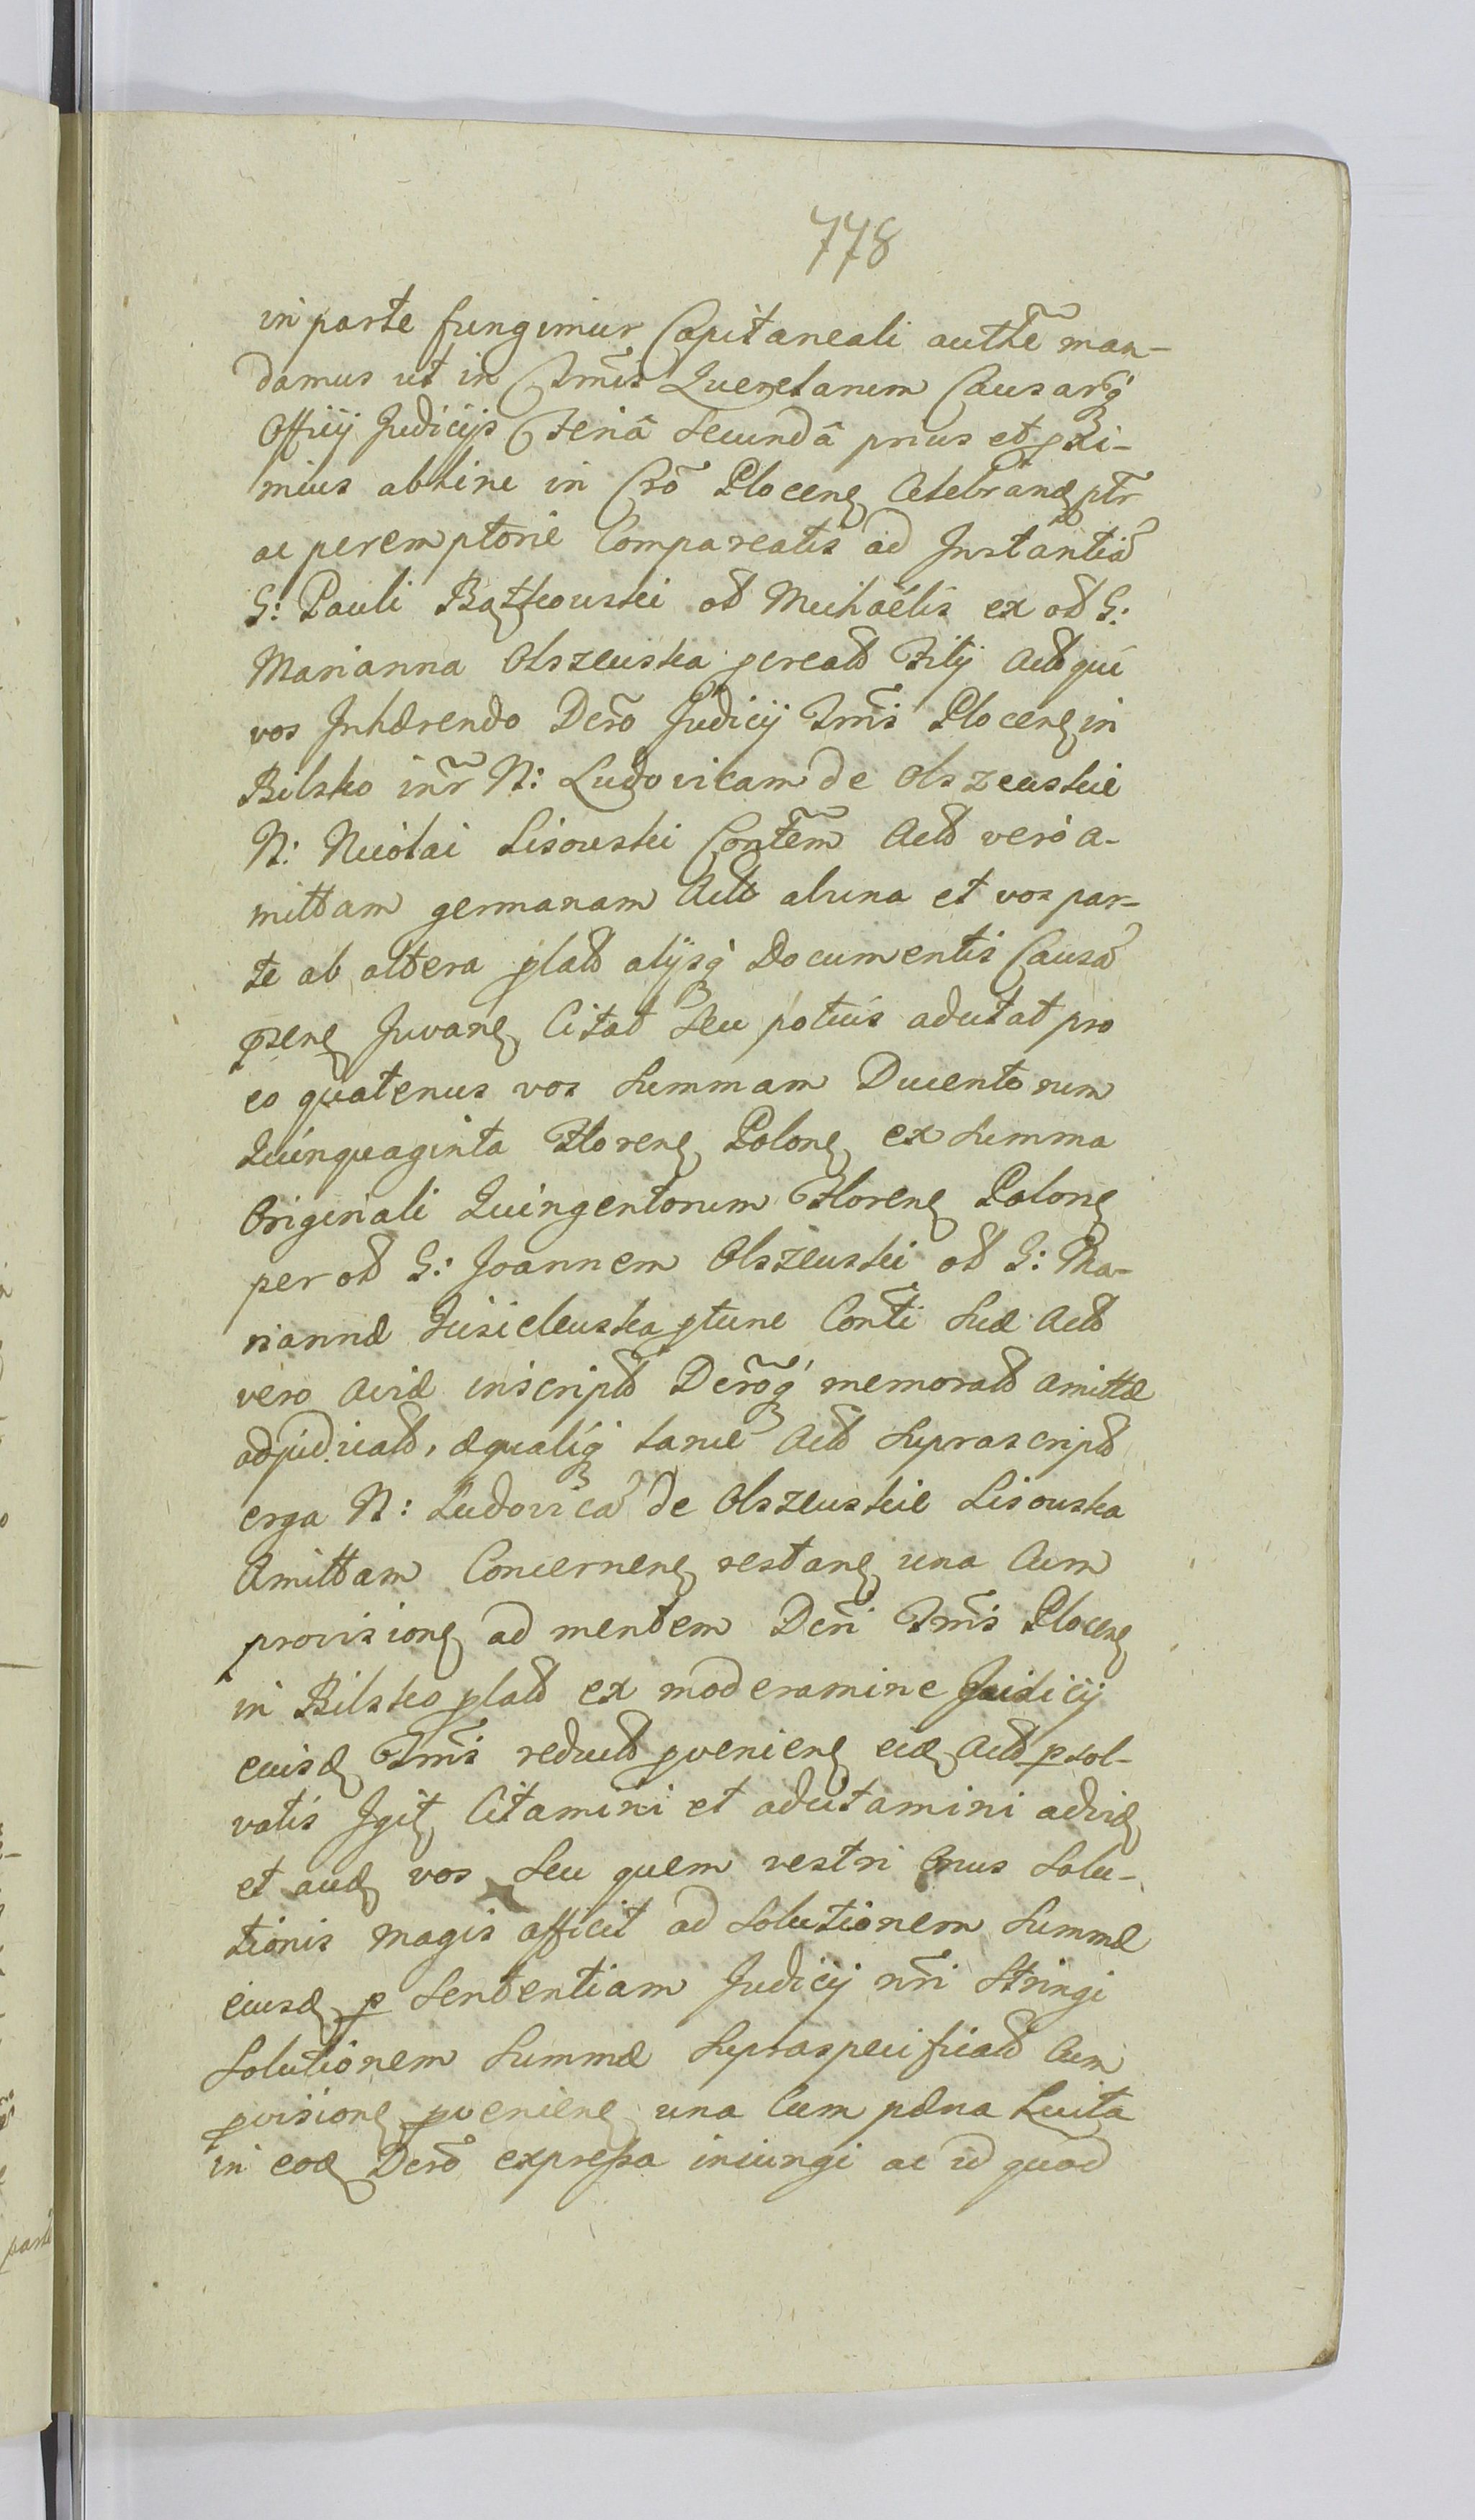 778
in parte fungimur Capitaneali authẽ man-
damus ut in Trm̃is Querelarum Causarq
Officij Judicijs Feriâ Secundâ prius et pxi-
mius abhinc in Crõ Plocenę Celebranđ ptr
ac peremptorie Compareatis ad Instantiã
G: Pauli Bątkowski oĩđ Michaelis ex oĩđ G:
Marianna Olszewska pcreatđ Filij Actđ qui
vos Inhærendo Dcrõ Judicij Trm̃s Plocenę in
Bilsko inr̃ N: Ludovicam de Olszewskie
N: Nicolai Lisowski Contẽm Actđ vero a-
mittam germanam Actđ ab una et vos par-
te ab altera platđ alijsq Documentis Causã
pssenę Juvanę Citat seu potius adcitat pro
eo quatenus vos Summam Ducentorum
Quinquaginta Florenę Polonę ex Summa
Originali Quingentorum Florenę Polonę
per ođ G: Joannem Olszewski ođ G: Ma-
riannæ ptunc Conti Suæ Actđ
vero Aviæ inscriptđ Dcrõq memoratđ amittæ
adjudicatđ, æqualiq Actđ Suprascriptđ
erga N: Ludovicã de Olszewskie Lisowska
Amittam Concernenę restanę una Cum
provisionę ad mentem Dcri Trm̃s Plocenę
in Bilsko platđ ex moderamine Judicij
eiusđ Trm̃s reductđ pvenienę eiđ Actđ psol-
vatis Igit Citamini et adcitamini ad viđ
et auđ vos Seu quem vestri Onus Solu-
tionis magis afficit ad Solutionem Summæ
eiusđ p Sententiam Judicij nr̃i Stringi
Solutionem Summæ Supraspecificatđ Cum
pvisionę pvenienę una Cum pæna Luita
in eođ Dcrõ expressa iniungi ac id quod